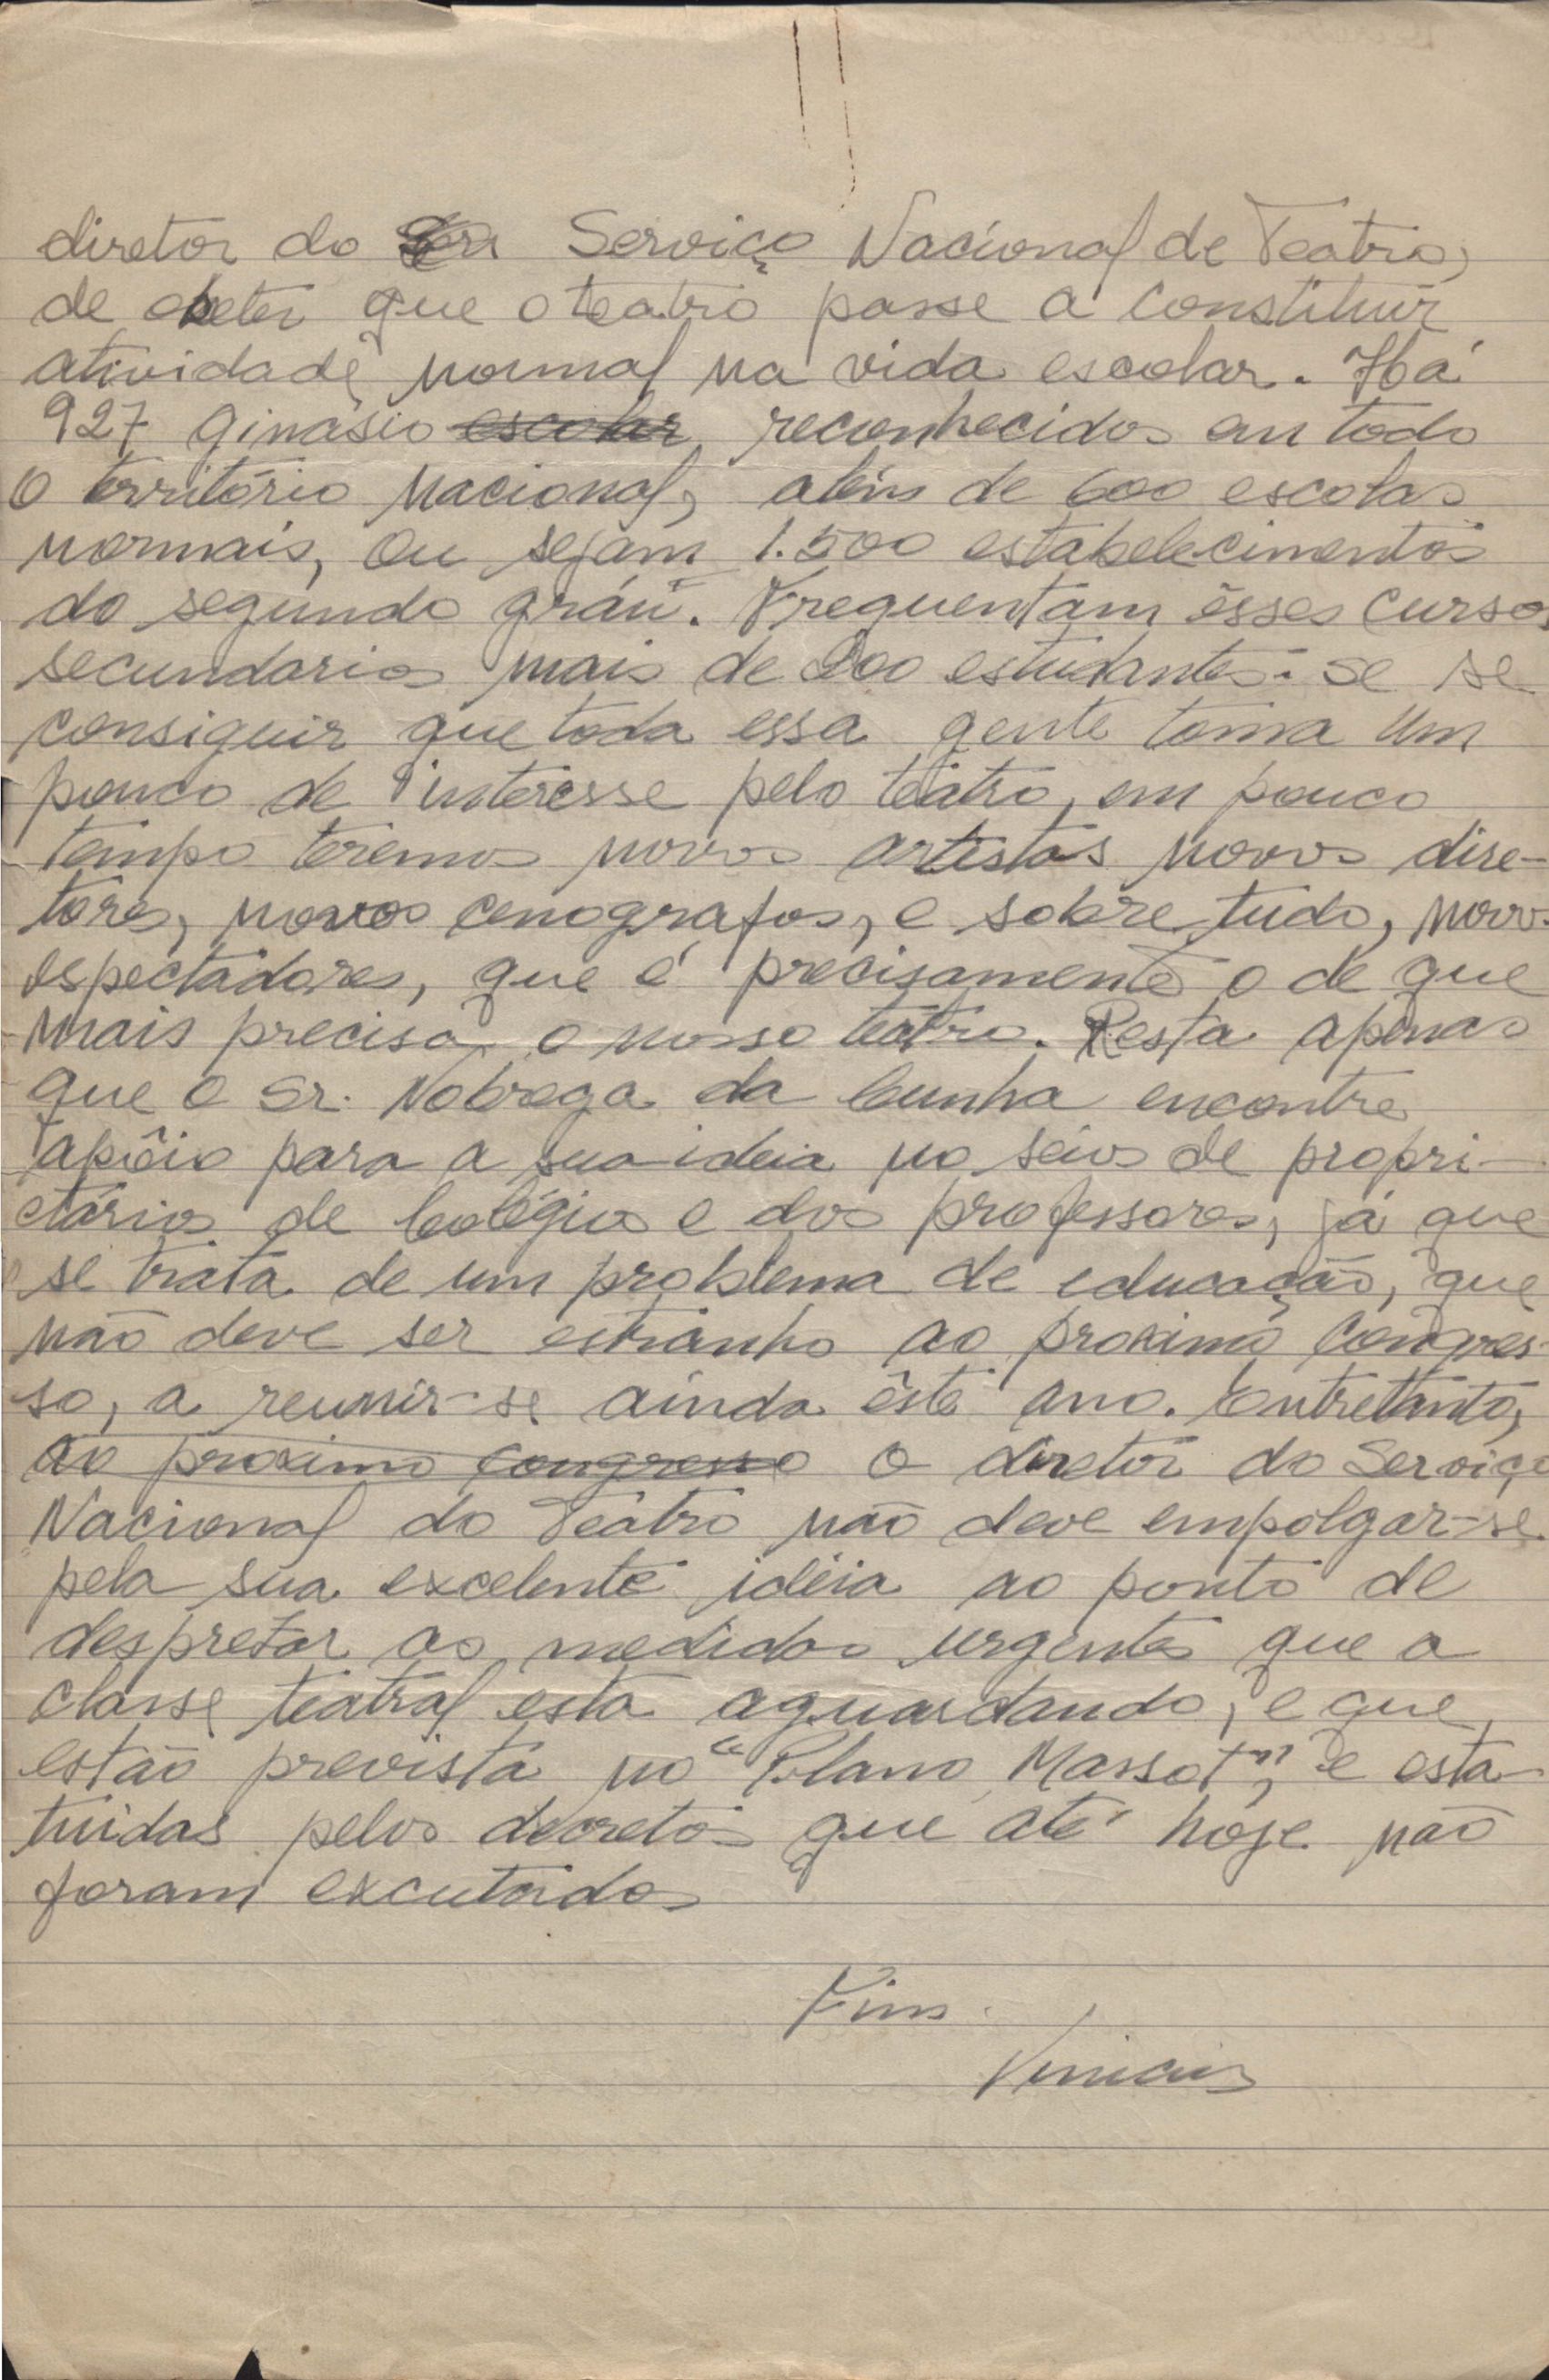 diretor do Serviço Nacional de Teatro,
de obeter que o teatro passe a constituir
atividade normal na vida escolar. Há
927 ginásio escolar reconhecidos em todo
o território nacional, além de 600 escolas
normais, ou sejam 1.500 estabelecimentos
do segundo gráu. Frequentam êsses cursos
secundarios mais de 200 estudantes. Se se
consiguir que toda essa gente toma um
pouco de interesse pelo teatro, em pouco
tempo teremos novos artistas novos dire-
tores, novos cenografos, e sobre tudo, novos
espectadores, que é precisamente o de que
mais precisa o nosso teatro. Resta apenas
que o Sr. Nobrega da Cunha encontre
apôio para a sua ideia no seios de propri-
etários de Colégios e dos professores, já que
se trata de um problema de educação, que
não deve ser estranho ao proximo congres-
so, a reunir-se ainda êste ano. Entretanto,
ao proximo congresso o diretor do Serviço
Nacional do Teatro não deve empolgar-se
pela sua excelente idéia ao ponto de
desprezar as medidas urgentes que a
classe teatral está aguardando, e que
estão prevista no "Plano Massot", e esta-
tuidas pelos decretos que até hoje não
foram excutados
Fim.
Vinicius